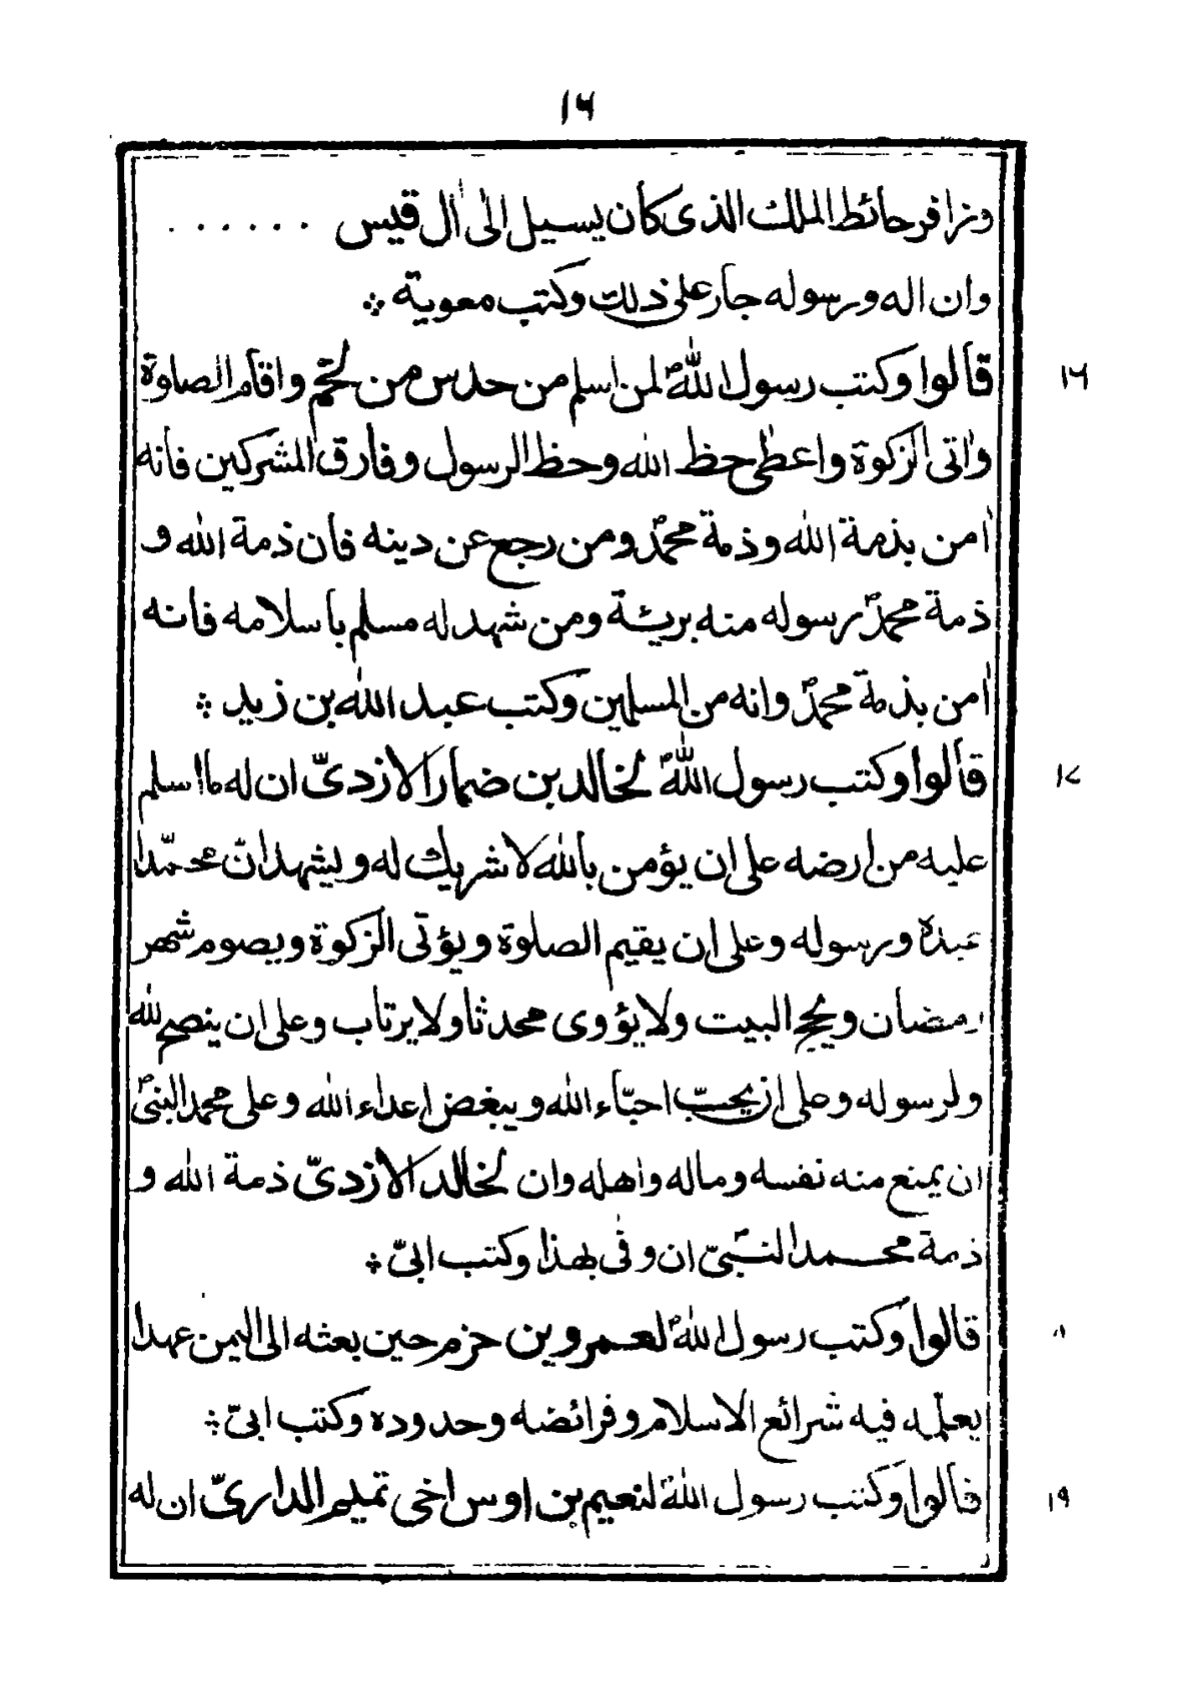 ١٦
وزرافر حائط الملك الذى كان يسيل الى اٰل قيس . . . . . .
وان اله ورسوله جار على ذلك وكتب معوية ⁘
١٦ قالوا وكتب رسول اللهؐ لمن اسلم من حدس من لخم واقام الصلوة
واٰتى الزكوة واعطٰى حظ الله وحظ الرسول وفارق المشركين فانه
اٰمن بذمة الله وذمة محمدؐ ومن رجع عن دينه فان ذمة الله و
ذمة محمدؐ رسوله منه بريئة ومن شهد له مسلم باسلامه فانه
اٰمن بذمة محمدؐ وانه من المسلمين وكتب عبد الله بن زيد ⁘
١٧ قالوا وكتب رسول اللهؐ لخالد بن ضمار الازدىّ ان له ما اسلم
عليه من ارضه على ان يؤمن بالله لا شريك له ويشهد انّ محمّدا
عبده ورسوله وعلى ان يقيم الصلوة ويؤتى الزكوة ويصوم شهر
رمضان ويحج البيت ولا يؤوى محدثا ولا يرتاب وعلى ان ينصح لله
ولرسوله وعلى ان يحبّ احبّاء الله ويبغض اعداء الله وعلى محمد النبىؐ
ان يمنع منه نفسه وماله واهله وان لخالد الازدىّ ذمة الله و
ذمة محمد النبىّؐ ان وفٰى بهذا وكتب ابىّ ⁘
قالوا وكتب رسول اللهؐ لعمرو بن حزم حين بعثه الى اليمن عهدا
يعلّمه فيه شرائع الاسلام وفرائضه وحدوده وكتب ابىّ ⁘
١٩ قالوا وكتب رسول اللهؐ لنعيم بن اوس اخى تميم الدارىّ ان له